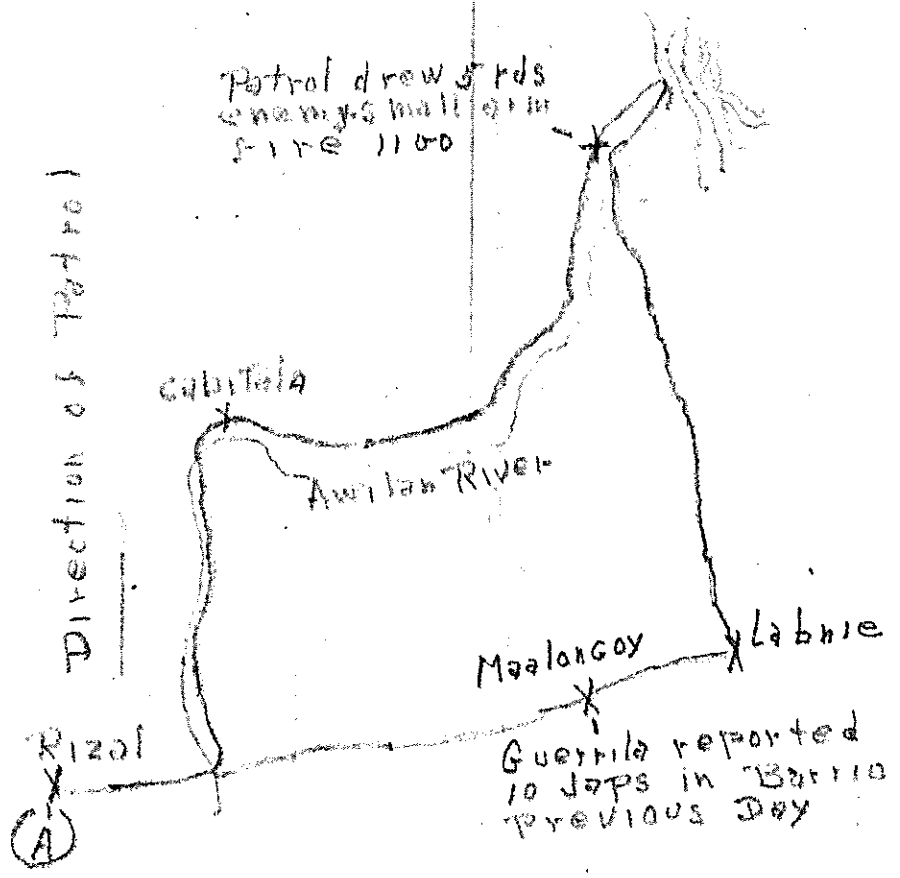 Patrol drew 5 rds
enemy small arm
fire 1100
Direction of Patrol
Cabitula
Awilan River
Labnie
Maaloncoy
Rizal
A
Guerrila reported
10 Japs in Barrio
previous Day